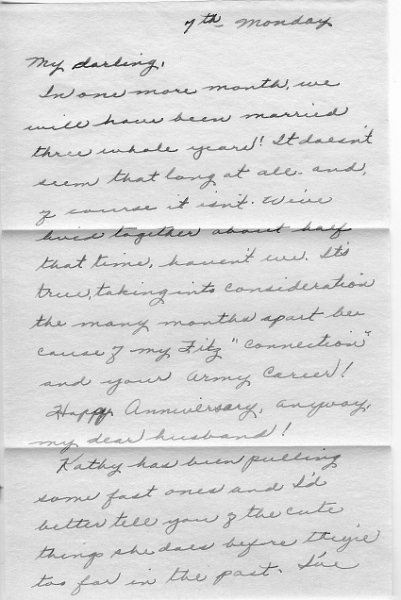 7th Monday
My darling,
In one more month, we
will have been married
three whole years! It doesn't
seem that long at all. and,
of course it isn't. We've
lived together about half
that time, haven't we. It's
true, taking into consideration
the many months apart be
cause of my Fitz "connection"
and your Army Career!
Happy Anniversary, anyway,
my dear husband!
Kathy has been pulling
some fast ones and I'd
better tell you of the cute
things she does before they're
too far in the past. I've